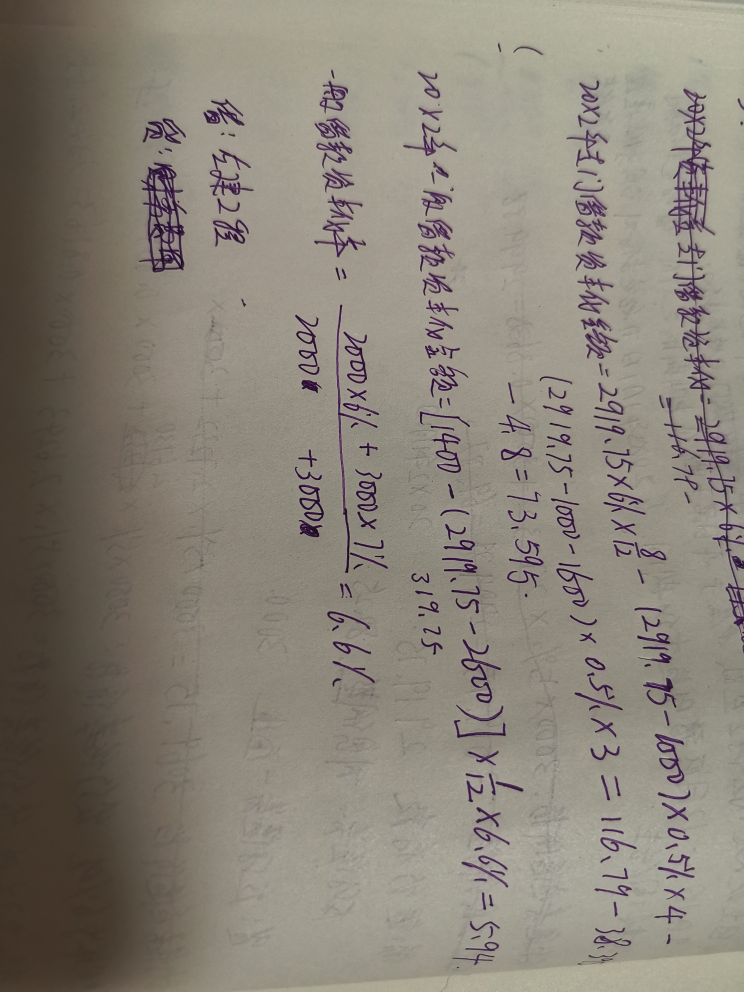 20X2年专门借款资本化金额 = 2919.75×6%×8/12 - (2919.75-1000)×0.5%×4 -
(2919.75-1000-1600)×0.5%×3 = 116.79-38.
- 4.8 = 73.595.
20X2年一般借款资本化金额 = [1400-(2919.75-2600)]×1/12×6.6% = 5.94.
319.75
一般借款资本化率 = 2000×6% + 3000×7% / 2000 + 3000 = 6.6%
借:在建工程
贷: